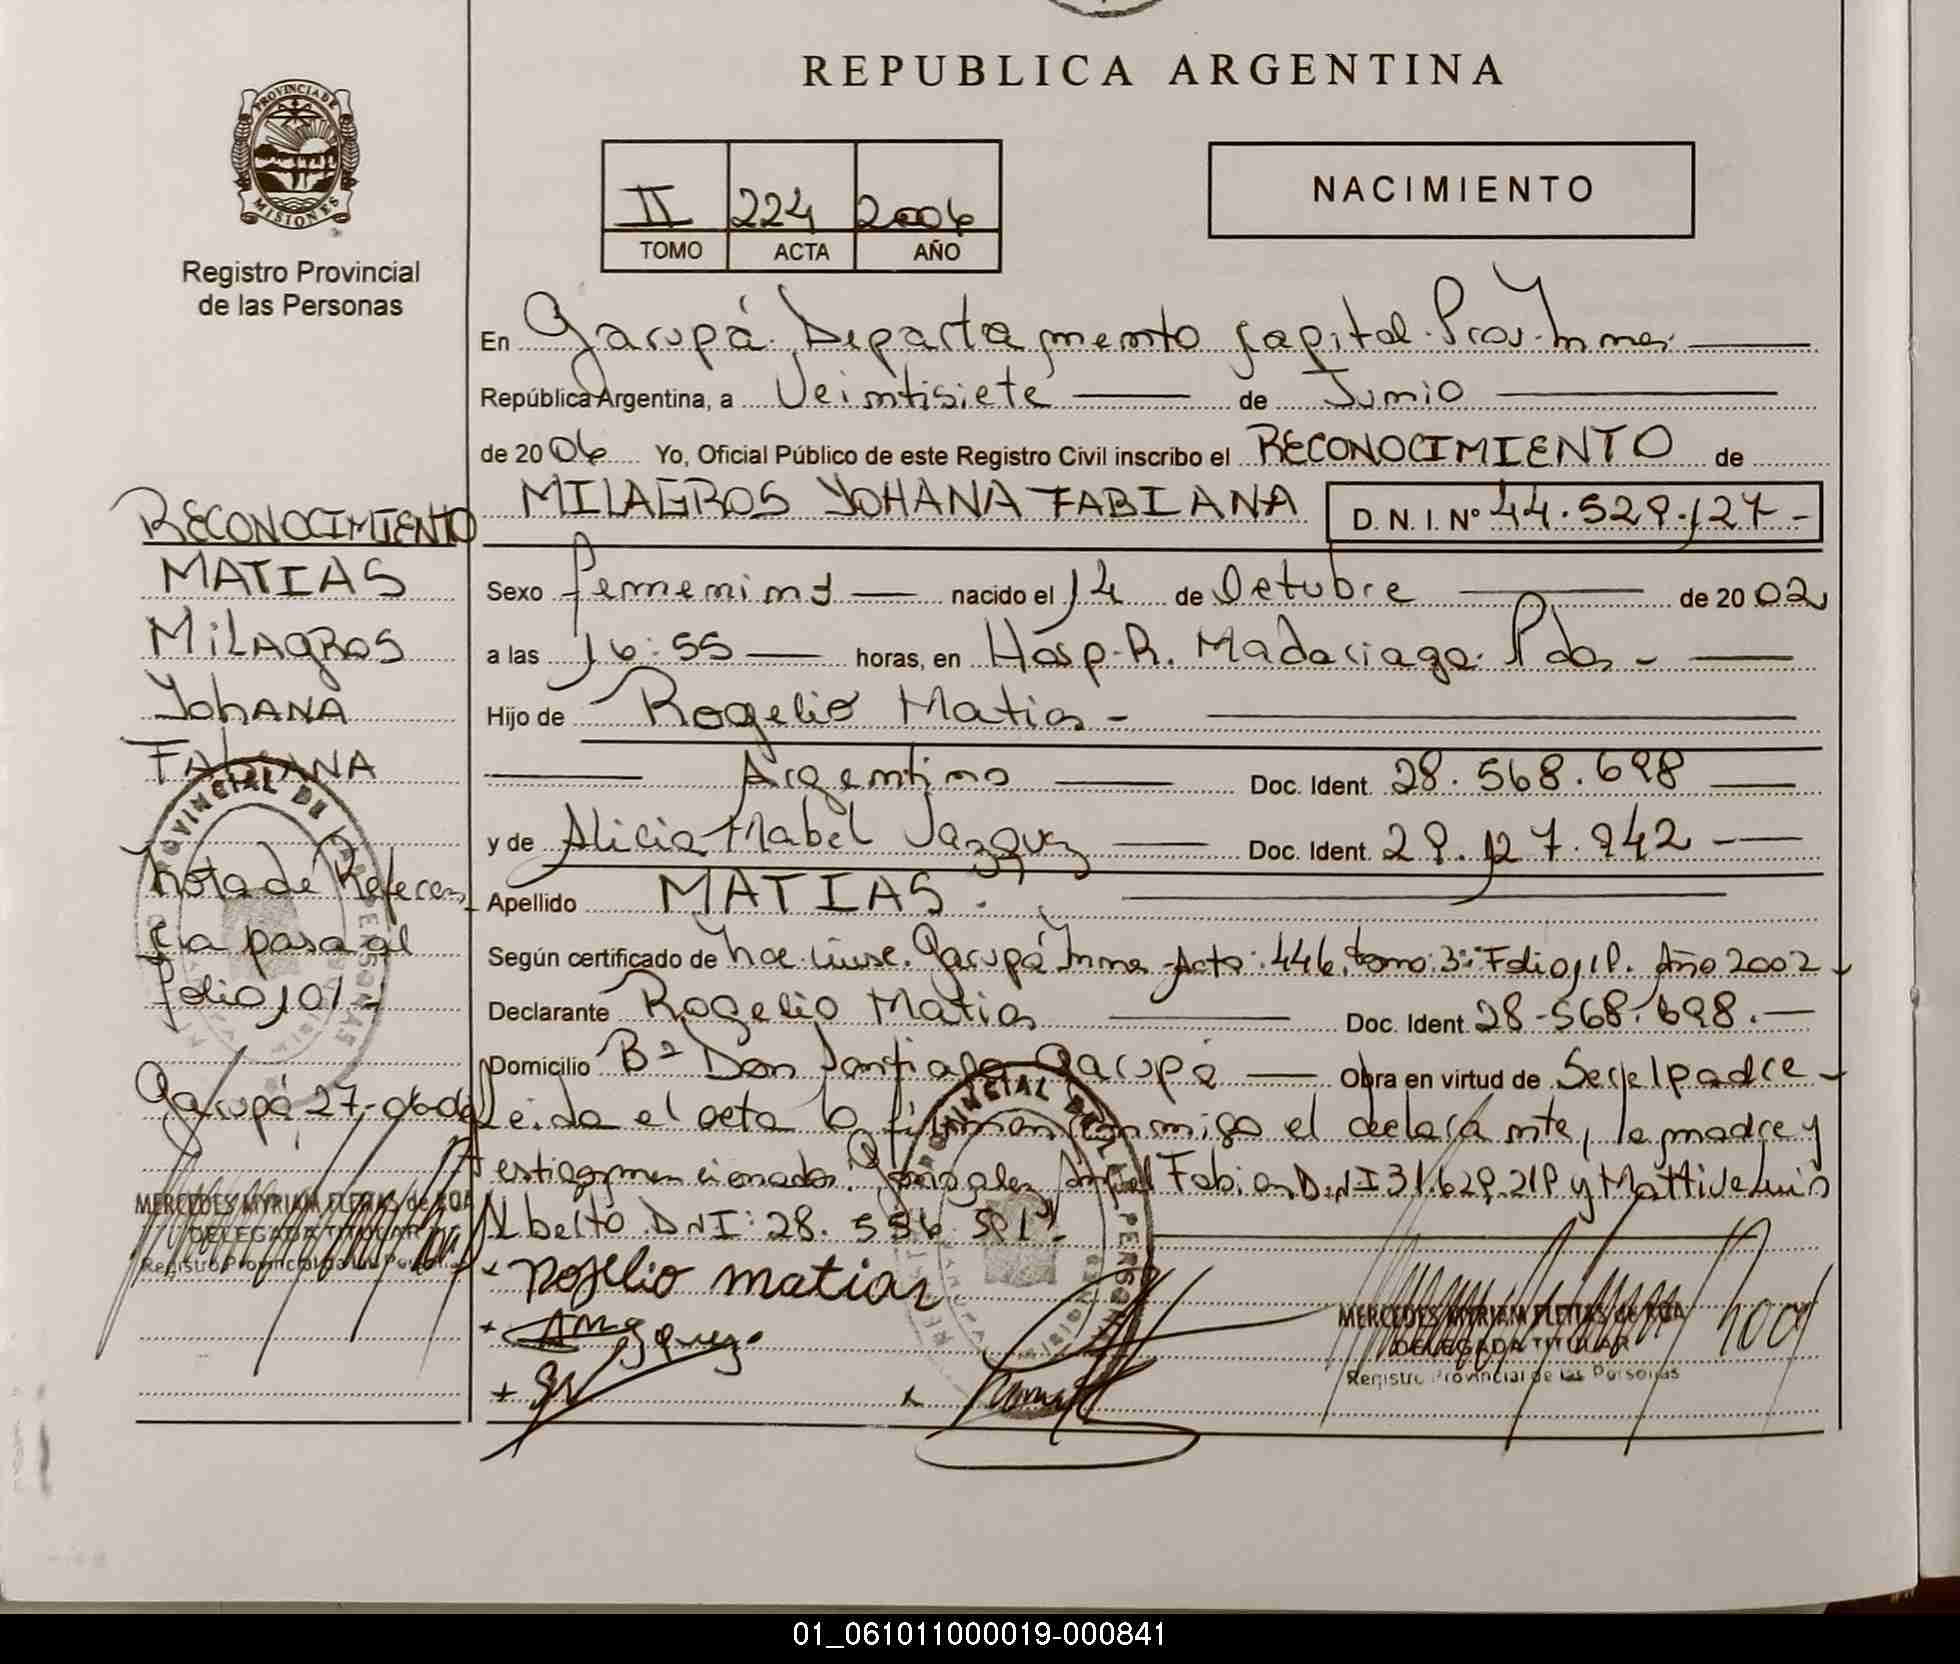 REPUBLICA ARGENTINA
PROVINCIA DE
MISIONES
Registro Provincial
de las Personas
II 224 2006
TOMO ACTA AÑO
NACIMIENTO
En Garupá. Departamento Capital. Prov. Mnes.
República Argentina, a Veintisiete de Junio
de 2006 Yo, Oficial Público de este Registro Civil inscribo el RECONOCIMIENTO de
MILAGROS YOHANA FABIANA D.N.I. Nº 44.529.127-
Sexo femenino nacido el 14 de Octubre de 2002
a las 16:55 horas, en Hosp. R. Madariaga. Pdas-
Hijo de Rogelio Matias-
Argentino Doc. Ident. 28.568.698
y de Alicia Mabel Vazquez Doc. Ident. 29.127.942
Apellido MATIAS.
Según certificado de Garupá Mnes Acta: 446, tomo: 3: Folio, Año 2002-
Declarante Rogelio Matias Doc. Ident. 28-568.698.
Domicilio Bº Don Santiago Garupá Obra en virtud de Ser el padre-
Leida el acta la firman conmigo el declarante, la madre y
testigos mencionados. Gonzalez Fabian D.N.I 31.629.219 y Luis
Alberto. DNI: 28.
Rogelio matias
MERCEDES MYRIAM FLEITAS de ROA
DELEGADA TITULAR
Registro Provincial de las Personas
RECONOCIMIENTO
MATIAS
MILAGROS
YOHANA
FABIANA
Nota de Referen
cia pasa al
folio 101-
Garupá 27-06-06
MERCEDES MYRIAM FLEITAS de ROA
DELEGADA TITULAR
Registro Provincial de las Personas
01_061011000019-000841